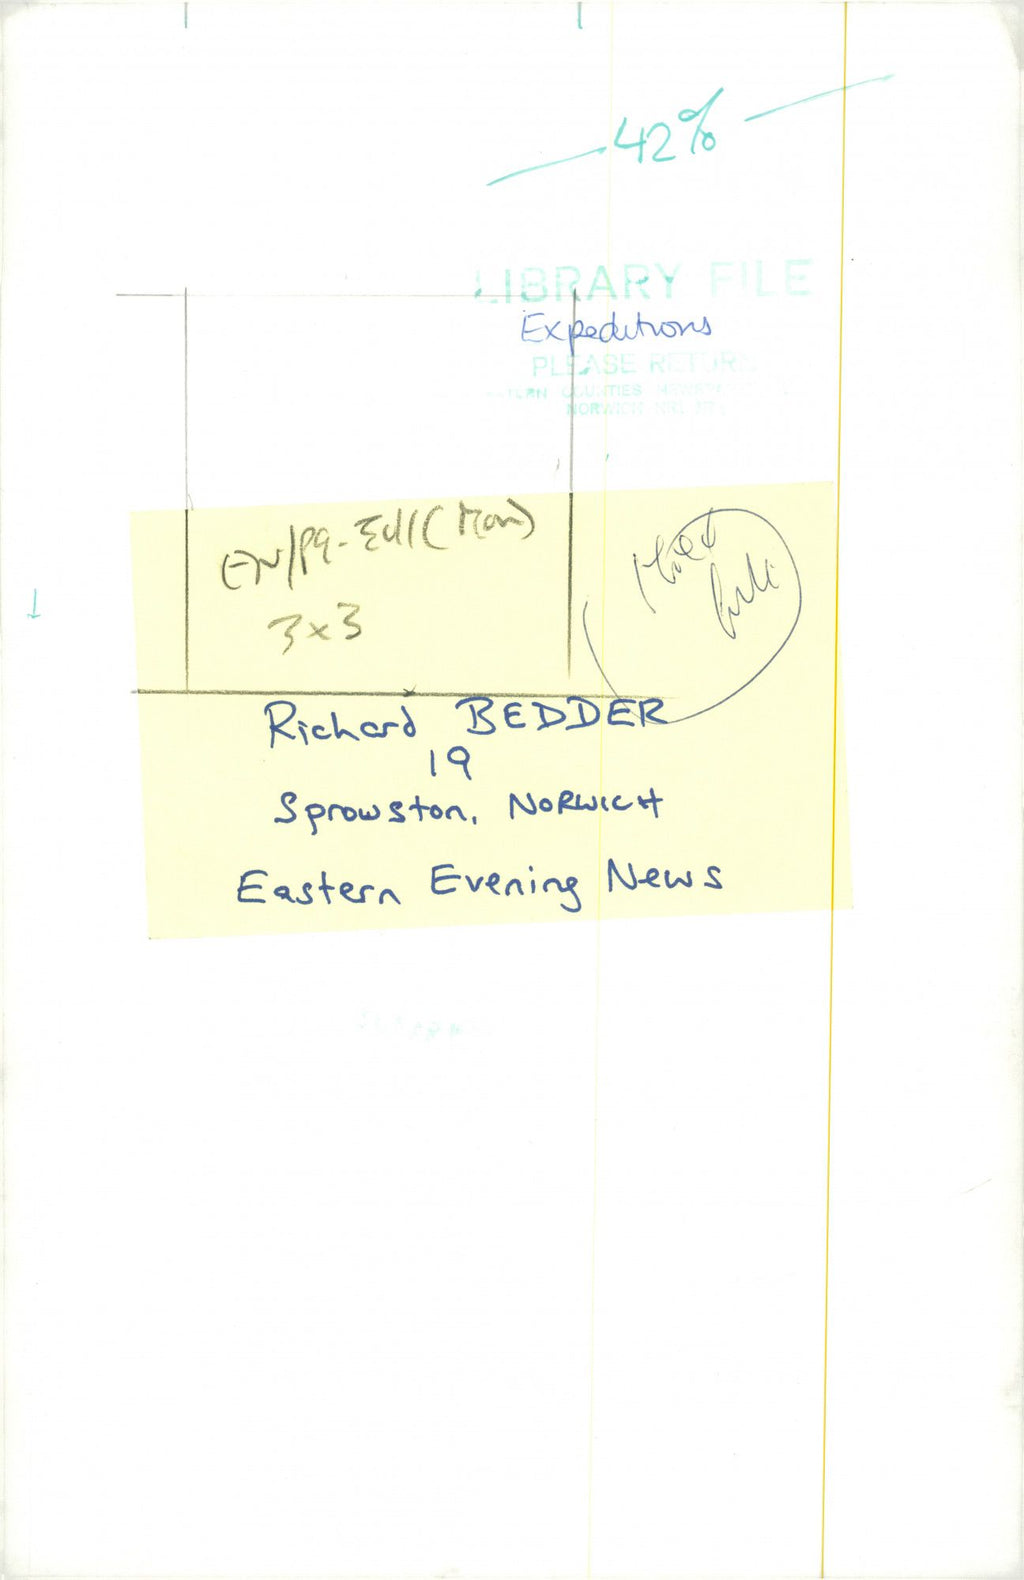 42%
LIBRARY FILE
Expeditions
PLEASE RETURN
COUNTIES
NORWICH NR1
3x3
Richard BEDDER
19
Sprowston, NORWICH
Eastern Evening News